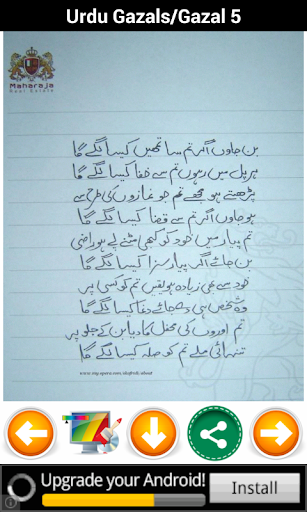 Urdu Gazals/Gazal 5
Maharaja
Real Estate
بن جاوں اگر تم سا تمھیں کیسا لگے گا
ہر پل میں رہوں تم سے خفا کیسا لگے گا
پڑھتے ہو مجھے تم جو نمازوں کی طرح سے
ہو جاوں اگر تم سے قضا کیسا لگے گا
تم پیار میں خود کو کبھی مٹنے پے ہو راضی
بن جائے اگر پیار سزا کیسا لگے گا
خود سے بھی زیادہ ہو یقیں تم کو کسی پر
وہ شخص ہی دے جائے دغا کیسا لگے گا
تم اوروں کی محفل کا دیا بن کے جلو پر
تنہائی ملے تم کو صلہ کیسا لگے گا
Upgrade your Android!
Install